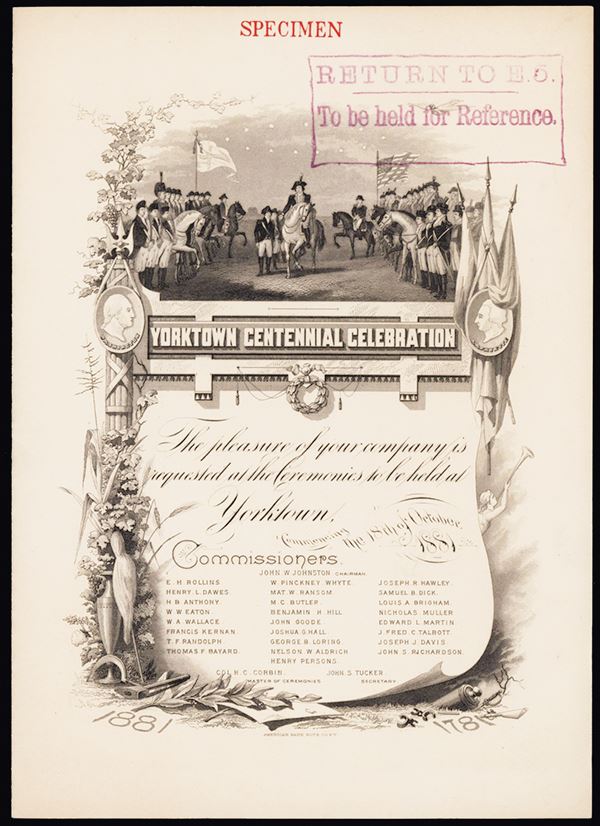 SPECIMEN
RETURN TO E.O.
To be held for Reference.
WASHINGTON
YORKTOWN CENTENNIAL CELEBRATION
The pleasure of your company is
requested at the Ceremonies to be held at
Yorktown,
Commencing
the 18th of October,
1881.
Commissioners.
JOHN W. JOHNSTON CHAIRMAN.
E. H. ROLLINS. W. PINCKNEY WHYTE. JOSEPH R. HAWLEY.
HENRY L. DAWES. MAT W. RANSOM. SAMUEL B. DICK.
H. B. ANTHONY. M. C. BUTLER. LOUIS A. BRIGHAM.
W. W. EATON. BENJAMIN H. HILL. NICHOLAS MULLER.
W. A. WALLACE. JOHN GOODE. EDWARD L. MARTIN.
FRANCIS KERNAN. JOSHUA G. HALL. J. FRED. C. TALBOTT.
T. F. RANDOLPH. GEORGE B. LORING. JOSEPH J. DAVIS.
THOMAS F. BAYARD. NELSON W. ALDRICH. JOHN S. RICHARDSON.
HENRY PERSONS.
COL. H. C. CORBIN. JOHN S. TUCKER.
MASTER OF CEREMONIES. SECRETARY.
1881 1781
AMERICAN BANK NOTE CO. N.Y.